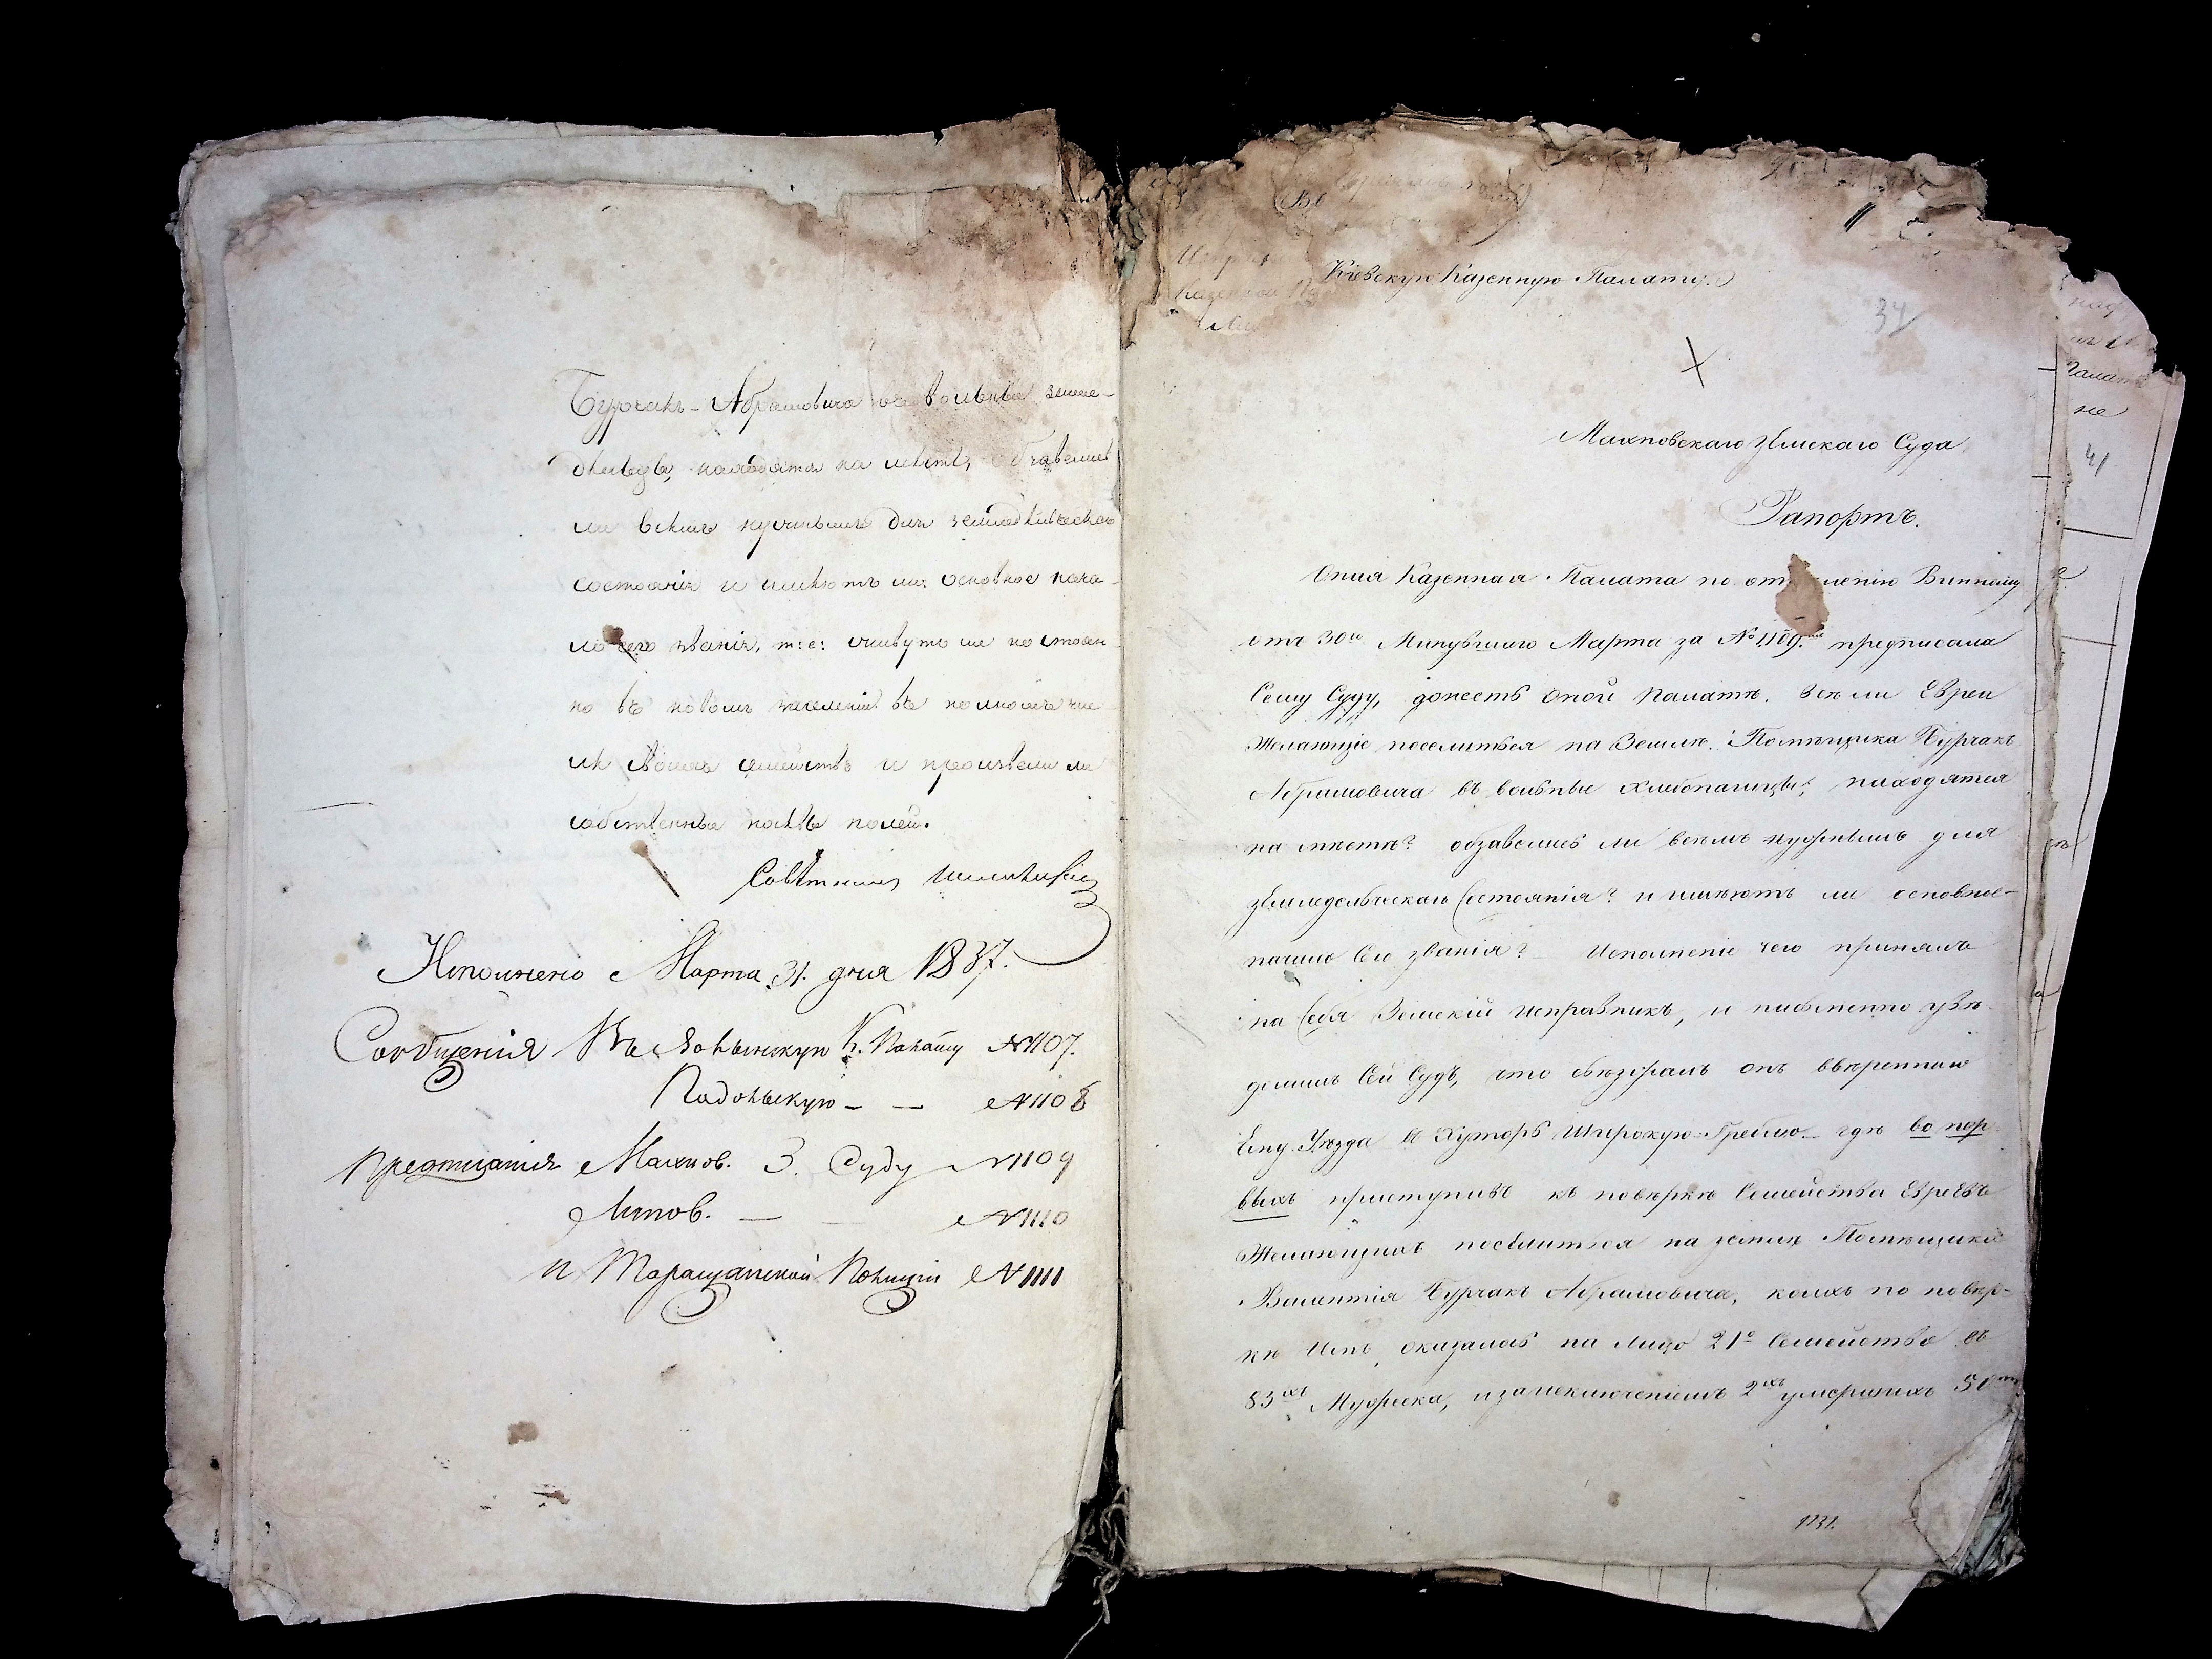 Бурчакъ-Абрамовича въ вольные земле-
дѣльцы, находятся на мѣстѣ, обзавелись
ли всѣмъ нужнымъ для земледѣльческаго
состоянія и имѣютъ ли основное нача-
ло сего званія, т: е: живутъ ли постоян
но въ новомъ заселеніи въ полномъ чис
лѣ своихъ семействъ и произвели ли
собственные посѣвы полей.
Совѣтникъ
Исполнено Марта 31. дня 1837.
Сообщенія Въ Волынскую К. Палату №1107.
Подольскую — — №1108
Предписанія Махнов. З. Суду №1109
Липов. — — №1110
и Таращанской Полиціи №1111
Въ
Кіевскую Казенную Палату.
34
Махновскаго Земскаго Суда
Рапортъ.
Оная Казенная Палата по отдѣленію Винному
отъ 30го Минувшаго Марта за №1109.мъ предписала
Сему Суду, донесть оной Палатѣ. Всѣ ли Евреи
Желающіе поселиться на Землѣ. Помѣщика Бурчакъ
Абрамовича въ вольные хлебопашцы, находятся
на мѣстѣ? обзавелись ли всѣмъ нужнымъ для
земледельческаго Состоянія? и имѣютъ ли основные
начала Сего званія? — Исполненіе чего принялъ
на Себя Земскій Исправникъ, и письменно увѣ-
домилъ Сей Судъ, что объезжалъ онъ ввѣреннаго
Ему Уѣзда въ Хуторъ Широкую-Греблю. гдѣ во пер-
выхъ приступивъ къ повѣркѣ Семейства Евреевъ
Желающихъ поселиться на землѣ Помѣщика
Валентія Бурчакъ Абрамовича, коихъ по повѣр-
кѣ Имъ, оказалось на лицо 21о Семейство въ
83ихъ Мужеска, изаисключеніемъ 2ихъ умершихъ
1131.